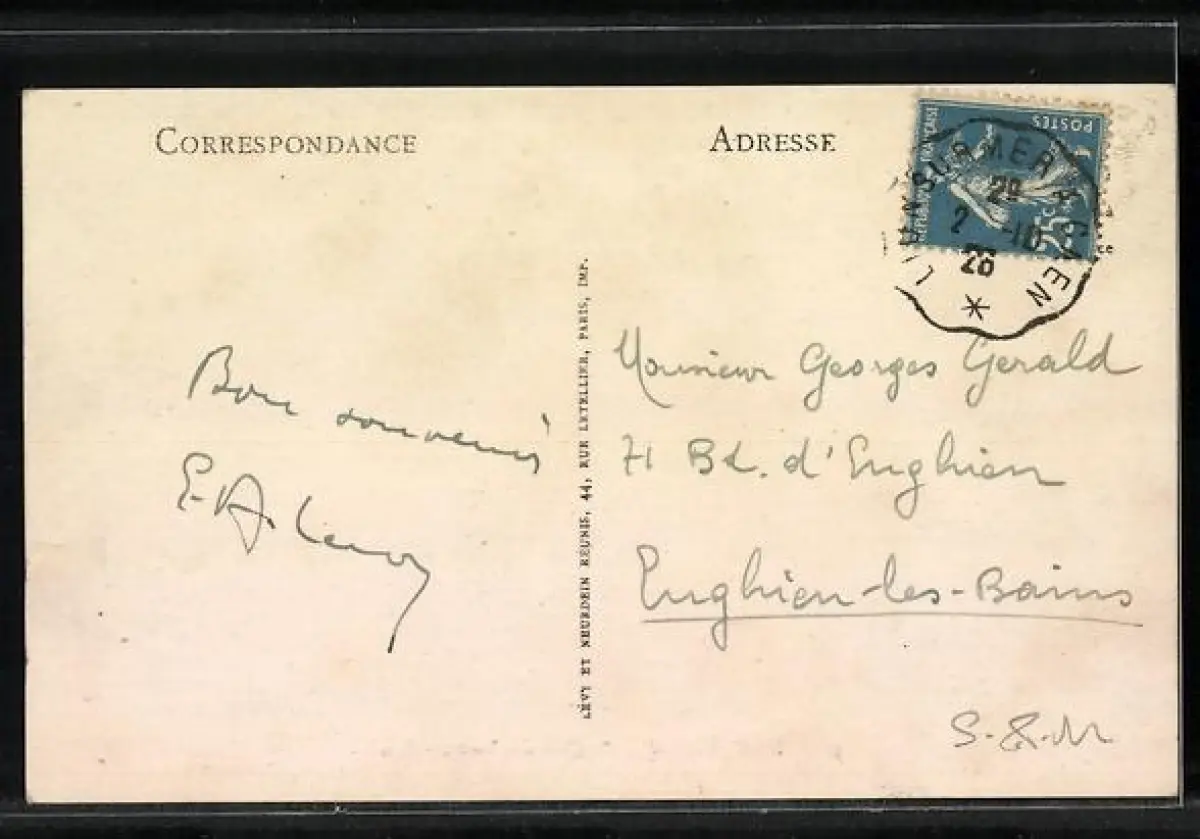 CORRESPONDANCE
ADRESSE
POSTES
FRANÇAISE
25c
SUR MER A CAEN
29
2 -10
26
ce
Bon souvenir
E. A. Leroy
LÉVY ET NEURDEIN RÉUNIS, 44, RUE LETELLIER, PARIS, IMP.
Monsieur Georges Gerald
71 Bd. d'Enghien
Enghien-les-Bains
S.-&-M